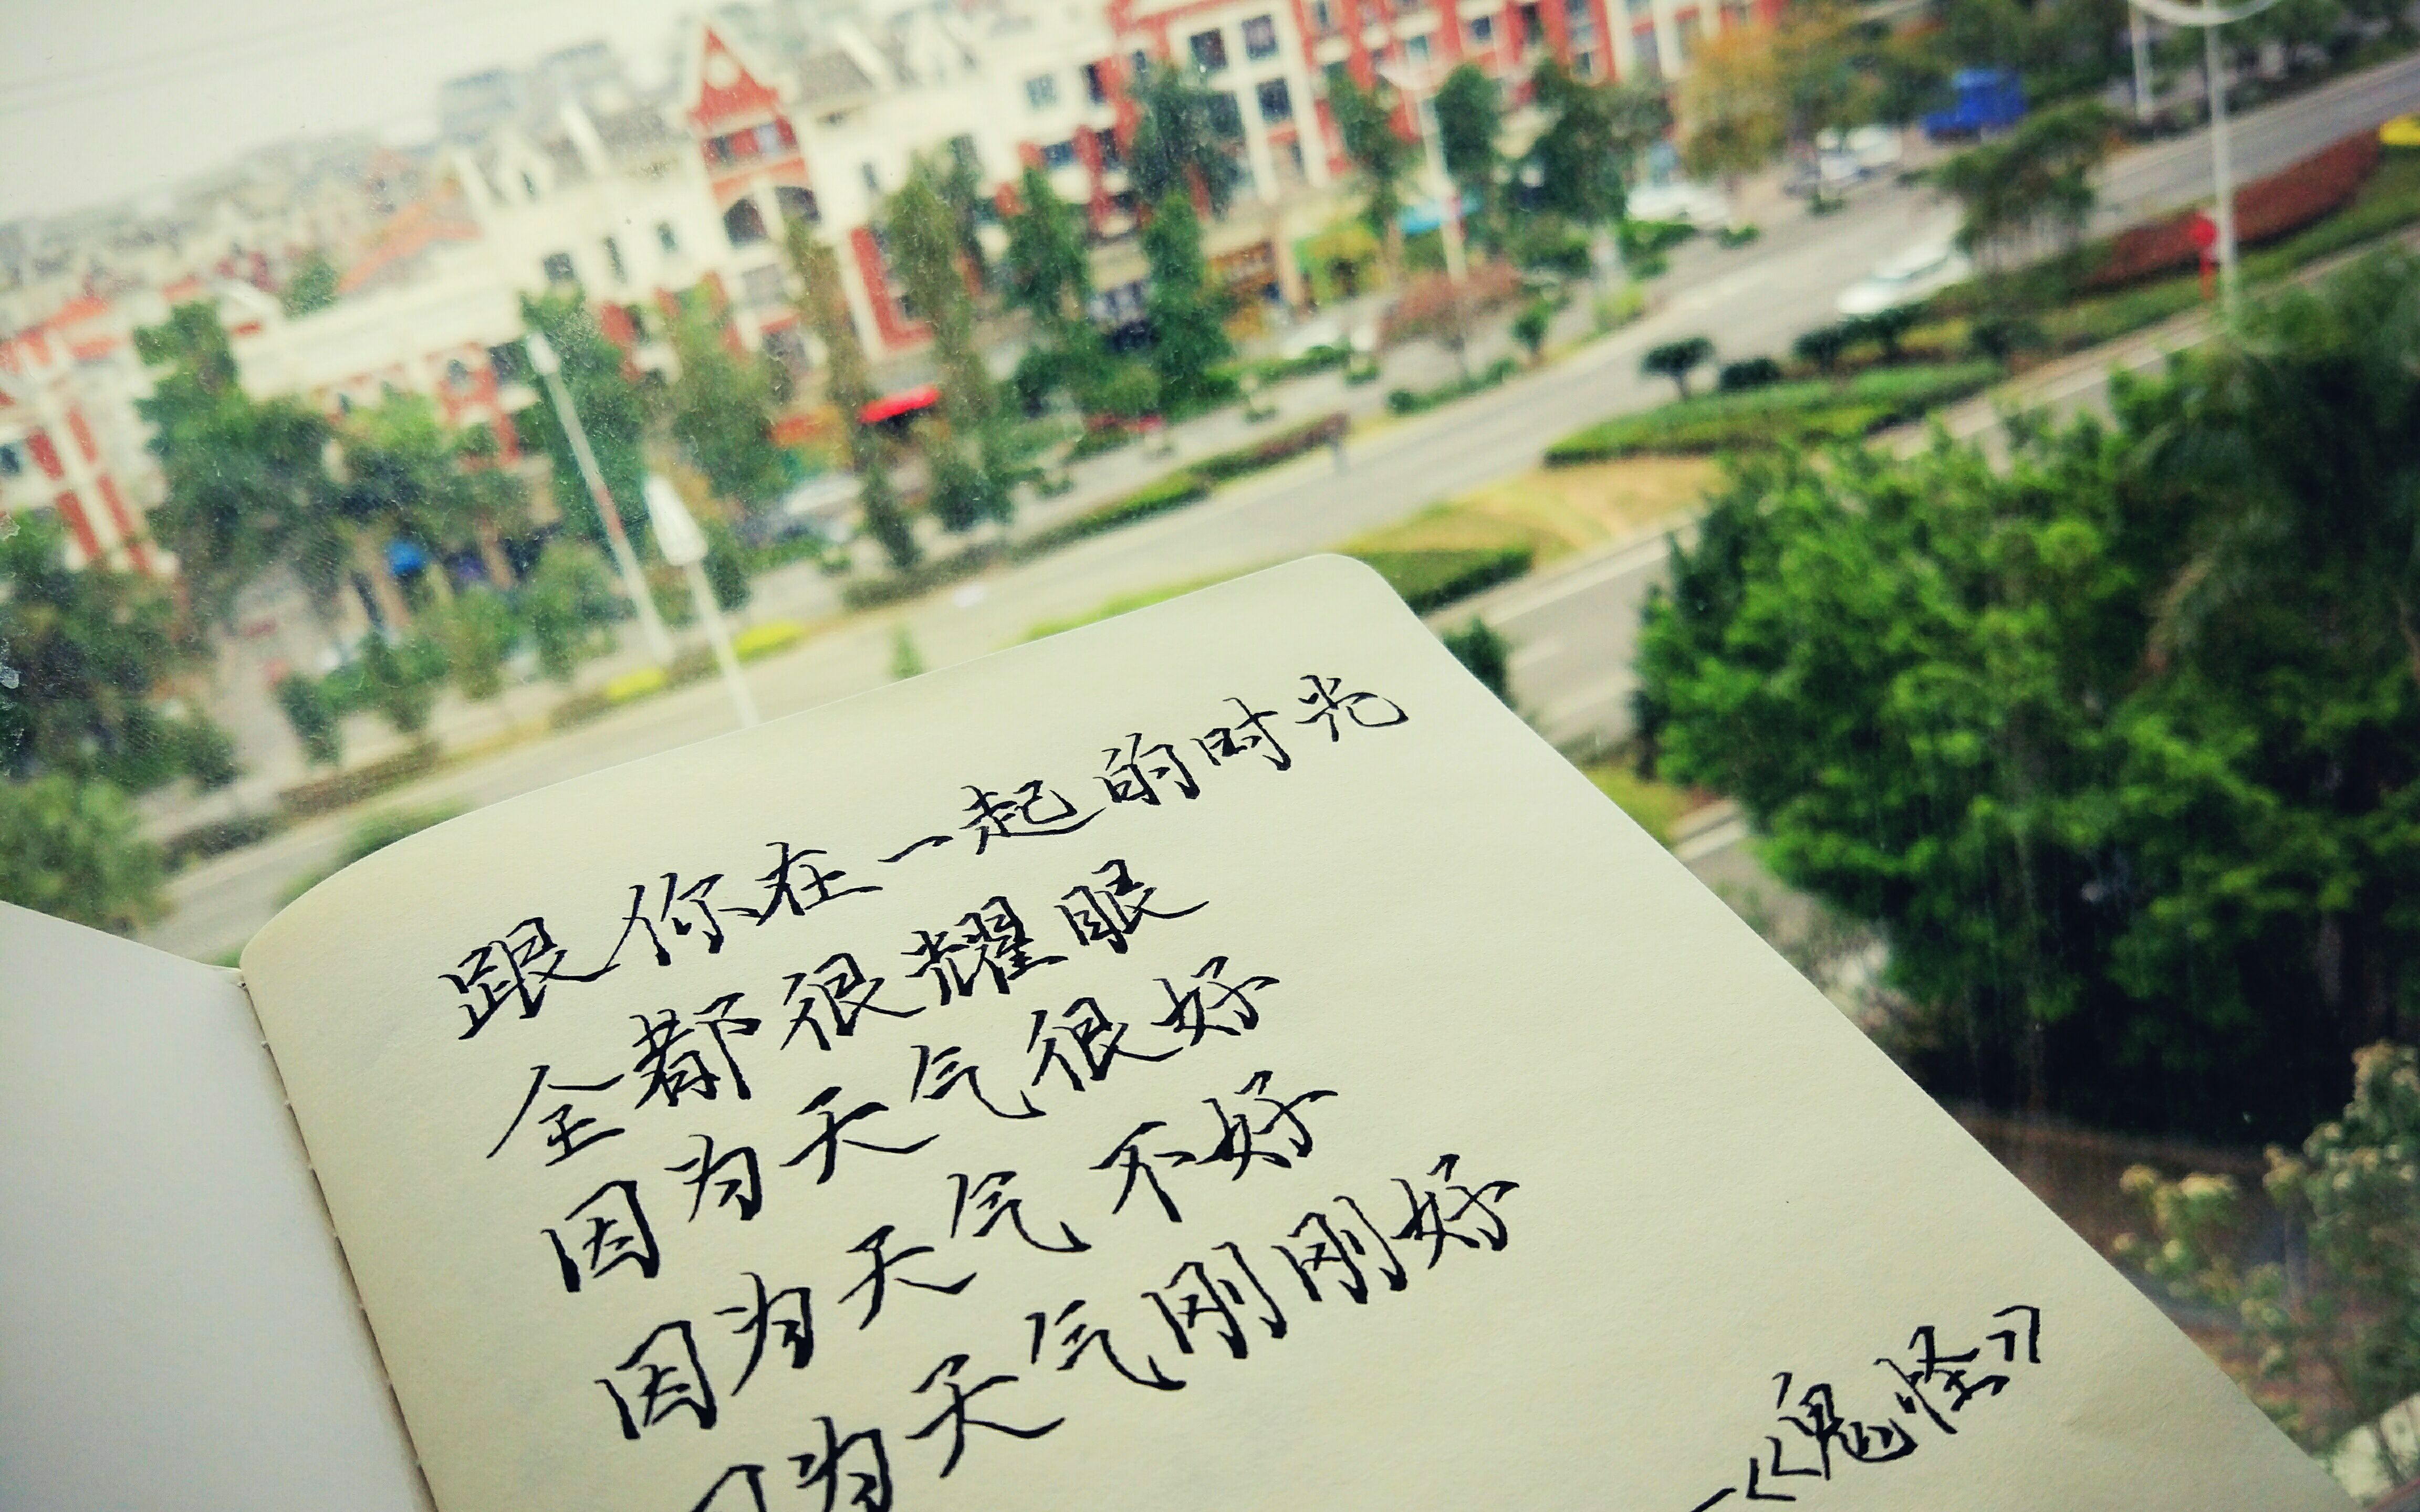 跟你在一起的时光
全都很耀眼
因为天气很好
因为天气不好
因为天气刚刚好
—《鬼怪》